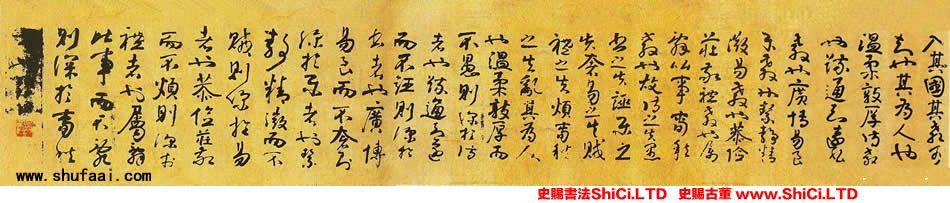 入其國其教可
知也其為人也
溫柔敦厚詩教
也疏通知遠書
教也廣博易良
樂教也絜靜精
微易教也恭儉
莊敬禮教也屬
辭比事春秋
教也故詩之失愚
書之失誣樂之
失奢易之失賊
禮之失煩春秋
之失亂其為人
也溫柔敦厚而
不愚則深於詩
者也疏通知遠
而不誣則深於
書者也廣博
易良而不奢則
深於樂者也絜
靜精微而不
賊則深於易
者也恭儉莊敬
而不煩則深於
禮者也屬辭
比事而不亂
則深於春秋
www.shufaai.com
史賜書法ShiCi.LTD 史賜古董 www.ShiCi.LTD